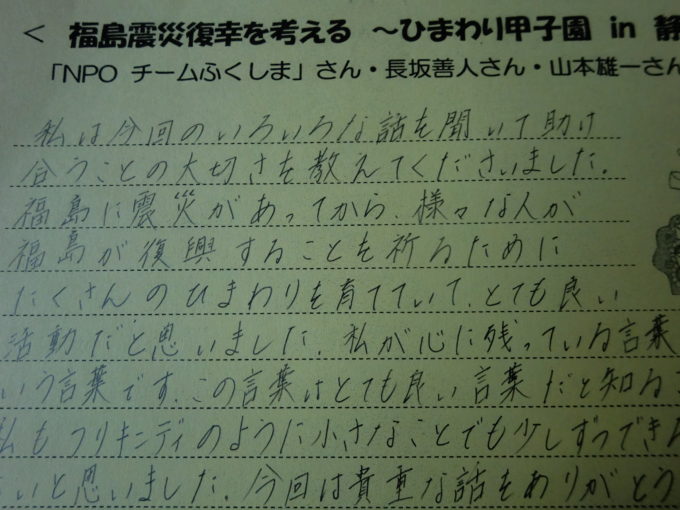 < 福島震災復幸を考える ～ひまわり甲子園 in 静
「NPO チームふくしま」さん・長坂善人さん・山本雄一さん
私は今回のいろいろな話を聞いて助け
合うことの大切さを教えてくださいました。
福島に震災があってから、様々な人が
福島が復興することを祈るために
たくさんのひまわりを育てていて、とても良い
活動だと思いました。私が心に残っている言葉
いう言葉です。この言葉はとても良い言葉だと知る
私もフリキンディのように小さなことでも少しずつでき
いと思いました。今回は貴重な話をありがとう